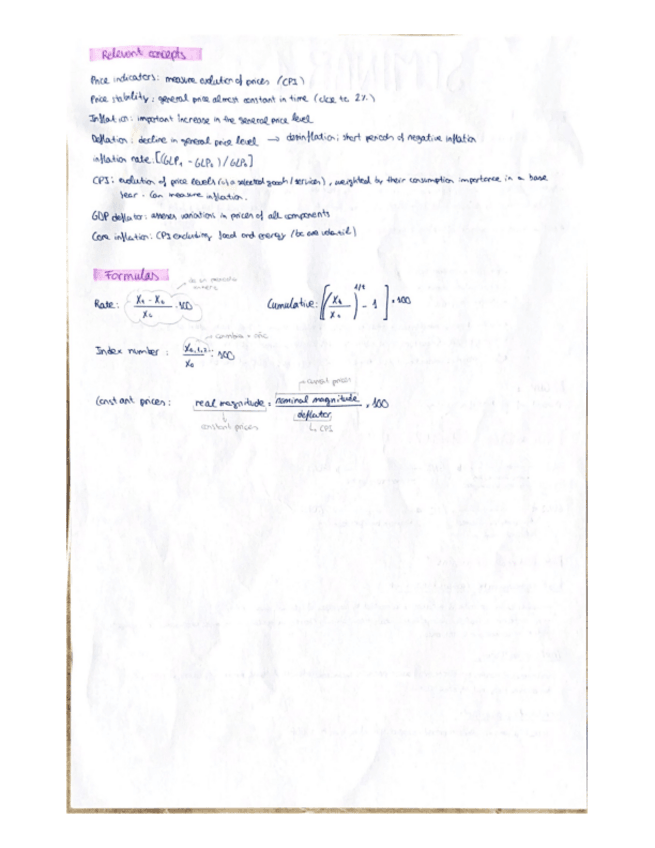 Relevant concepts
Price indicators: measure evolution of prices (CPI)
Price stability: general price almost constant in time (close to 2%)
Inflation: important increase in the general price level
Deflation: decline in general price level → desinflation: short periods of negative inflation
inflation rate: [(GLP₁ - GLP₀) / GLP₀]
CPI: evolution of price levels (of a selected goods / services), weighted by their consumption importance in a base
year. Can measure inflation.
GDP deflator: assesses variations in prices of all components
Core inflation: CPI excluding food and energy (bc are volatil)
Formulas
Rate: Xₜ - X₀ / X₀ · 100
Cumulative: [(Xₜ / X₀)^1/t - 1] · 100
Index number: / X₀ · 100
current prices
Constant prices: real magnitude = nominal magnitude / deflator · 100
constant prices
↳ CPI